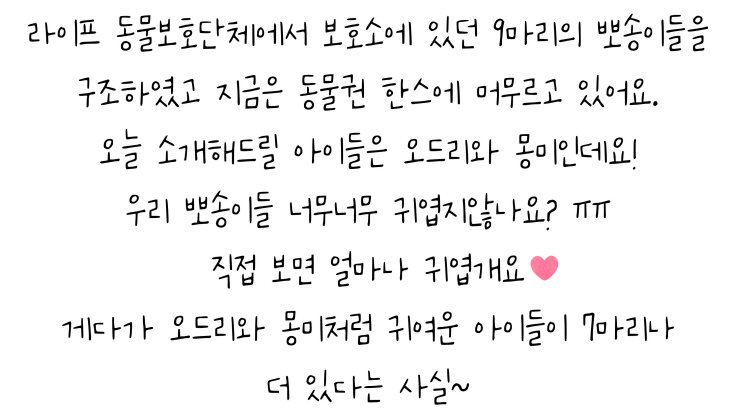 라이프 동물보호단체에서 보호소에 있던 9마리의 뽀송이들을
구조하였고 지금은 동물권 한스에 머무르고 있어요.
오늘 소개해드릴 아이들은 오드리와 몽미인데요!
우리 뽀송이들 너무너무 귀엽지않나요? ㅠㅠ
직접 보면 얼마나 귀엽개요
게다가 오드리와 몽미처럼 귀여운 아이들이 7마리나
더 있다는 사실~